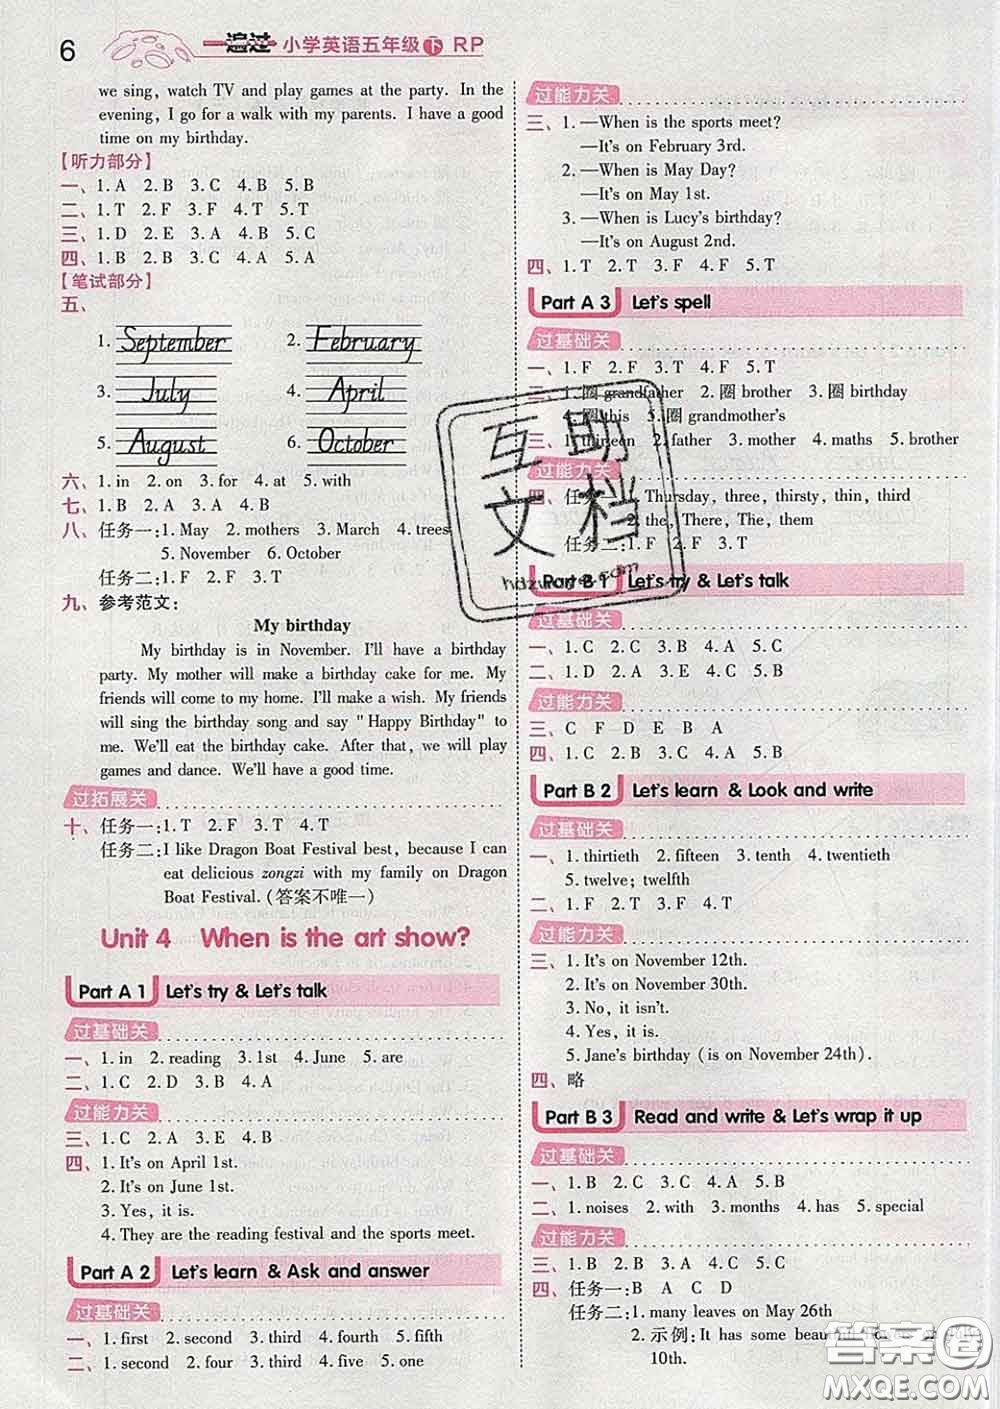 6 一遍过 小学英语五年级 下 RP
we sing, watch TV and play games at the party. In the
evening, I go for a walk with my parents. I have a good
time on my birthday.
【听力部分】
一、1. A 2. B 3. C 4. B 5. B
二、1. T 2. F 3. F 4. T 5. T
三、1. D 2. E 3. A 4. B 5. C
四、1. B 2. B 3. C 4. A 5. B
【笔试部分】
五、
1. September 2. February
3. July 4. April
5. August 6. October
六、1. in 2. on 3. for 4. at 5. with
七、1. B 2. A 3. A 4. B
八、任务一:1. May 2. mothers 3. March 4. trees
5. November 6. October
任务二:1. T 2. F 3. F 4. F
九、参考范文:
My birthday
My birthday is in November. I'll have a birthday
party. My mother will make a birthday cake for me. My
friends will come to my home. I'll make a wish. My friends
will sing the birthday song and say "Happy Birthday" to
me. We'll eat the birthday cake. After that, we will play
games and dance. We'll have a good time.
过拓展关
十、任务一:1. T 2. F 3. T 4. T
任务二:I like Dragon Boat Festival best, because I can
eat delicious zongzi with my family on Dragon
Boat Festival. (答案不唯一)
Unit 4 When is the art show?
Part A 1 Let's try & Let's talk
过基础关
一、1. in 2. reading 3. 1st 4. June 5. are
二、1. C 2. D 3. B 4. A
过能力关
三、1. C 2. A 3. E 4. B
四、1. It's on April 1st.
2. It's on June 1st.
3. Yes, it is.
4. They are the reading festival and the sports meet.
Part A 2 Let's learn & Ask and answer
过基础关
一、1. first 2. second 3. third 4. fourth 5. fifth
二、1. second 2. four 3. third 4. five 5. one
过能力关
三、1. —When is the sports meet?
—It's on February 3rd.
2. —When is May Day?
—It's on May 1st.
3. —When is Lucy's birthday?
—It's on August 2nd.
四、1. T 2. T 3. F 4. F 5. T
Part A 3 Let's spell
过基础关
一、1. F 2. F 3. T 4. F 5. T
二、1. 圈 grandfather 2. 圈 brother 3. 圈 birthday
4. 圈 this 5. 圈 grandmother's
三、1. thirteen 2. father 3. mother 4. maths 5. brother
过能力关
四、任务一:1. Thursday, three, thirsty, thin, third
2. the, There, The, them
任务二:1. F 2. F 3. T
Part B 1 Let's try & Let's talk
过基础关
一、1. C 2. C 3. B 4. A 5. C
二、1. D 2. A 3. E 4. C 5. B
过能力关
三、C F D E B A
四、1. C 2. B 3. C 4. A 5. B
Part B 2 Let's learn & Look and write
过基础关
一、1. thirtieth 2. fifteen 3. tenth 4. twentieth
5. twelve; twelfth
二、1. F 2. T 3. F 4. T
过能力关
三、1. It's on November 12th.
2. It's on November 30th.
3. No, it isn't.
4. Yes, it is.
5. Jane's birthday (is on November 24th).
四、略
Part B 3 Read and write & Let's wrap it up
过基础关
一、1. B 2. C 3. C 4. A 5. B
二、1. noises 2. with 3. months 4. has 5. special
过能力关
三、1. B 2. B 3. B 4. A 5. C
四、任务一:B A C D
任务二:1. many leaves on May 26th
2. 示例:It has some beautiful
10th.
互助
文档
答案圈
MXQE.COM